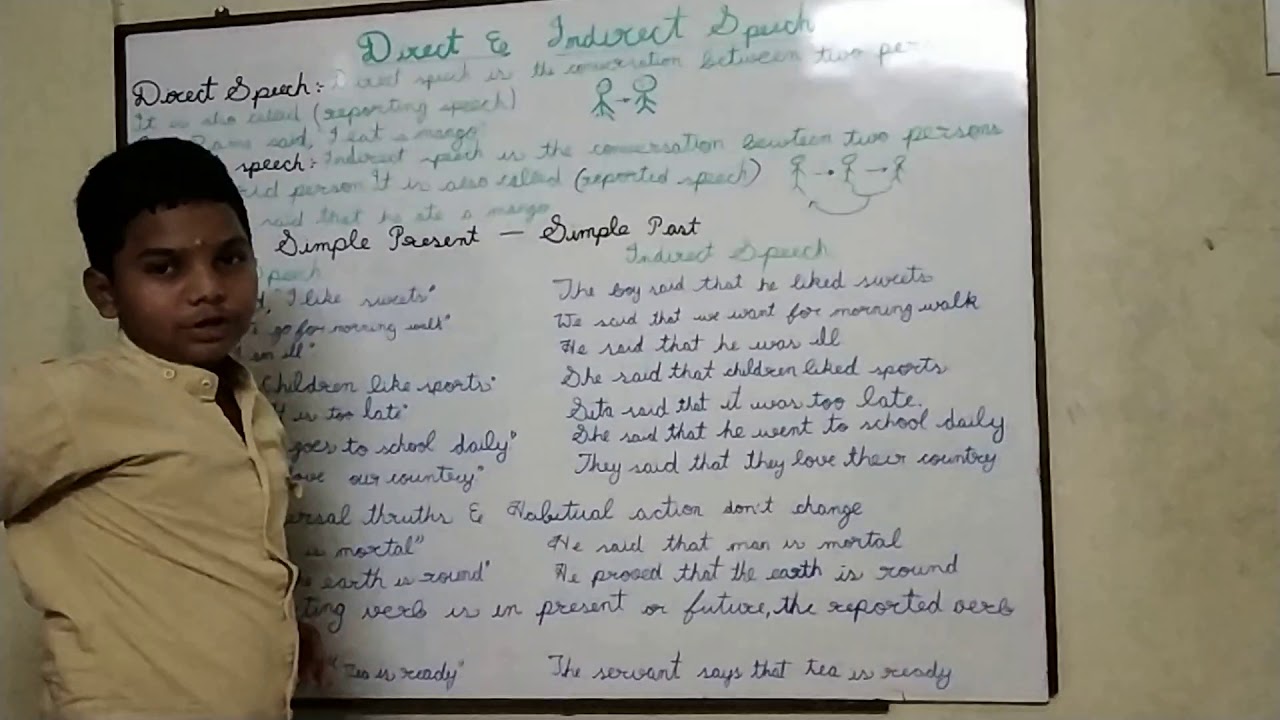 Direct & Indirect Speech
Direct Speech: Direct speech is the conversation between two per
It is also called (reporting speech)
Rama said, I eat a mango
speech: Indirect speech is the conversation bewteen two persons
person It is also called (reported speech)
said that he ate a mango
Simple Present — Simple Past
Speech Indirect Speech
"I like sweets" The boy said that he liked sweets
go for morning walk" We said that we want for morning walk
am ill" He said that he was ill
Children like sports" She said that children liked sports
is too late" Sita said that it was too late.
goes to school daily" She said that he went to school daily
our country" They said that they love their country
thruths & Habitual action don't change
is mortal" He said that man is mortal
earth is round" He proved that the earth is round
verb is in present or future, the reported verb
"Tea is ready" The servant says that tea is ready